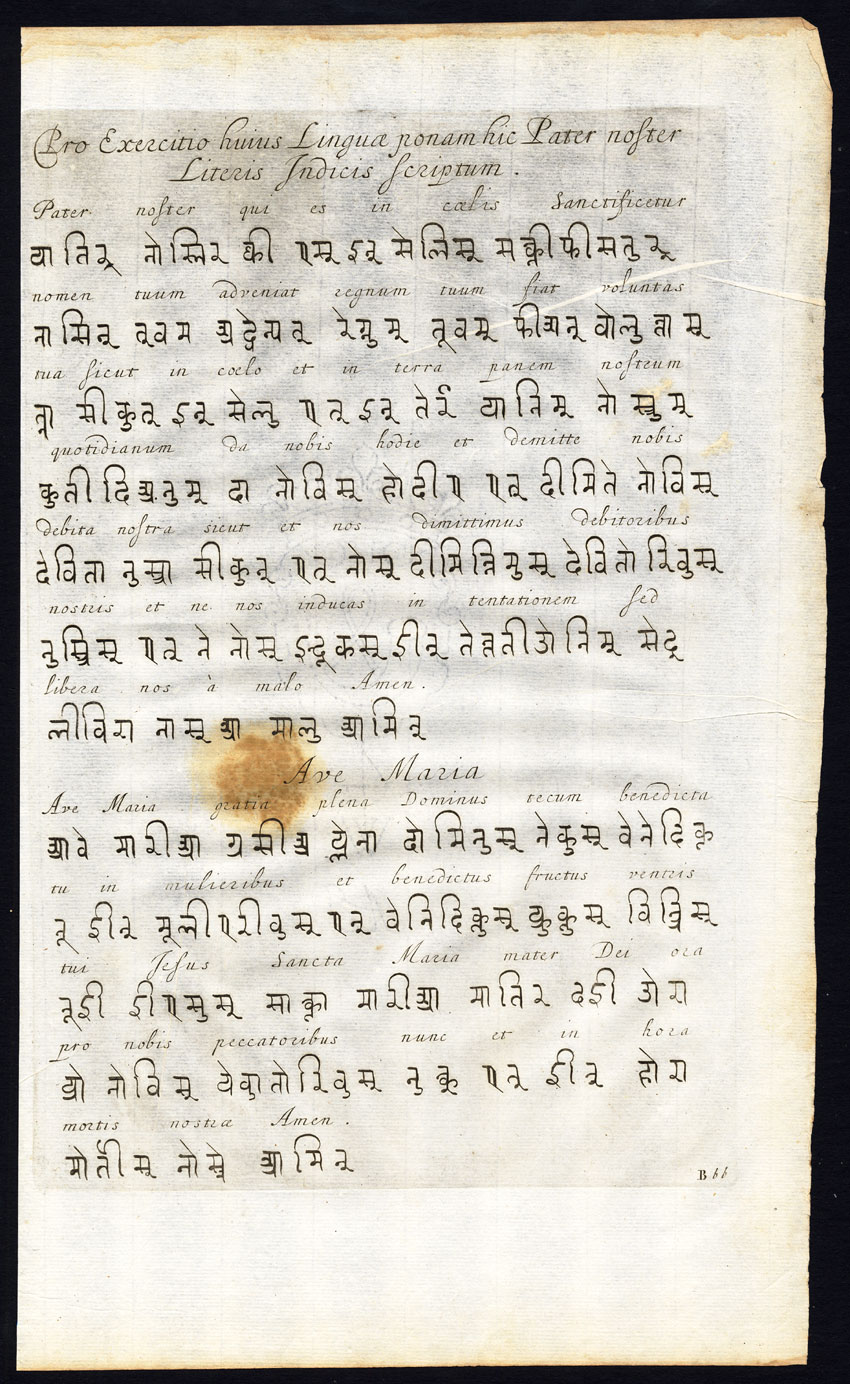 Pro Exercitio huius Linguæ ponam hic Pater noster
Literis Indicis scriptum.
Pater noster qui es in cœlis Sanctificetur
यातिर् नोस्तिर क्वी एस् इन् सेलिस् सङ्क्तीफीसतुर्
nomen tuum adveniat regnum tuum fiat voluntas
नामिन् तूवम अद्वेन्यत् रेग्नुम् तूवम् फीअत् वोलुन्तास्
tua sicut in cœlo et in terra panem nostrum
त्वा सीकुत् इन् सेलु एत् इन् तेर्र यानिम् नोस्त्रुम्
quotidianum da nobis hodie et demitte nobis
कुतीदिअनुम् दा नोविस् होदीए एत् दीमिते नोविस्
debita nostra sicut et nos dimittimus debitoribus
देविता नुस्त्रा सीकुत् एत् नोस् दीमित्तिमुस् देवितोरिवुस्
nostris et ne nos inducas in tentationem sed
नुस्त्रिस् एत् ने नोस् इन्दूकस् ईीन् तेन्ततीओनिम् सेद्
libera nos à malo Amen.
लीविरा नास् आ मालु आमिन्
Ave Maria
Ave Maria gratia plena Dominus tecum benedicta
आवे मारीआ ग्रसीअ प्लेना दोमिनुस् तेकुम् वेनेदिक्त
tu in mulieribus et benedictus fructus ventris
तू ईीन् मूलीएरीवुस् एत् वेनिदिक्तुस् फ्रुक्तुस् विन्त्रिस्
tui Jesus Sancta Maria mater Dei ora
तूई ईीएसुस् साङ्क्ता मारीआ मातिर दई ओरा
pro nobis peccatoribus nunc et in hora
प्रो नोविस् पेकातोरिवुस् नुङ्क् एत् ईीन् होरा
mortis nostræ Amen.
मोर्तीस् नोस्त्रे आमिन्
Bbb